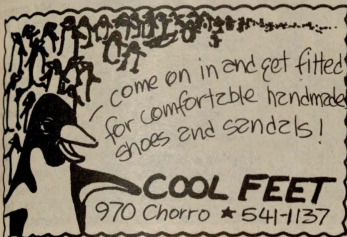 come on in and get fitted
for comfortable handmade
shoes and sandals!
COOL FEET
970 Chorro ★ 541-1137